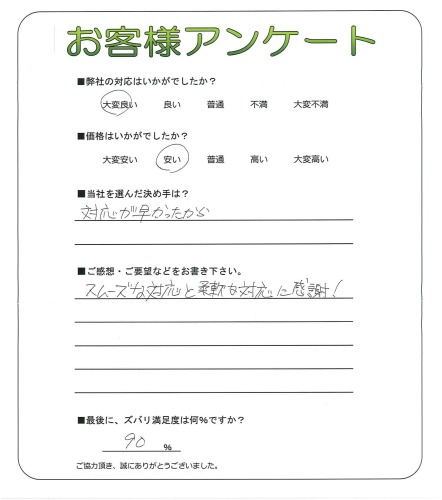 お客様アンケート
■弊社の対応はいかがでしたか?
大変良い 良い 普通 不満 大変不満
■価格はいかがでしたか?
大変安い 安い 普通 高い 大変高い
■当社を選んだ決め手は?
対応が早かったから
■ご感想・ご要望などをお書き下さい。
スムーズな対応と柔軟な対応に感謝!
■最後に、ズバリ満足度は何%ですか?
90 %
ご協力頂き、誠にありがとうございました。